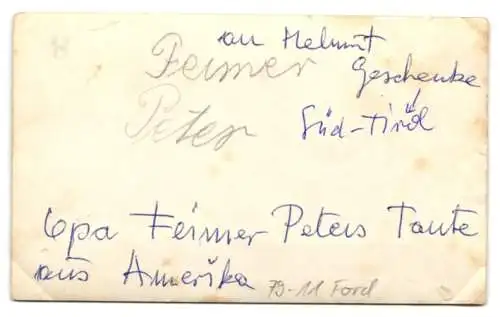 an Helmut
Feimer Geschenke
Peter Süd-Tiröl
Opa Feimer Peters Tante
aus Amerika 79-11 Ford